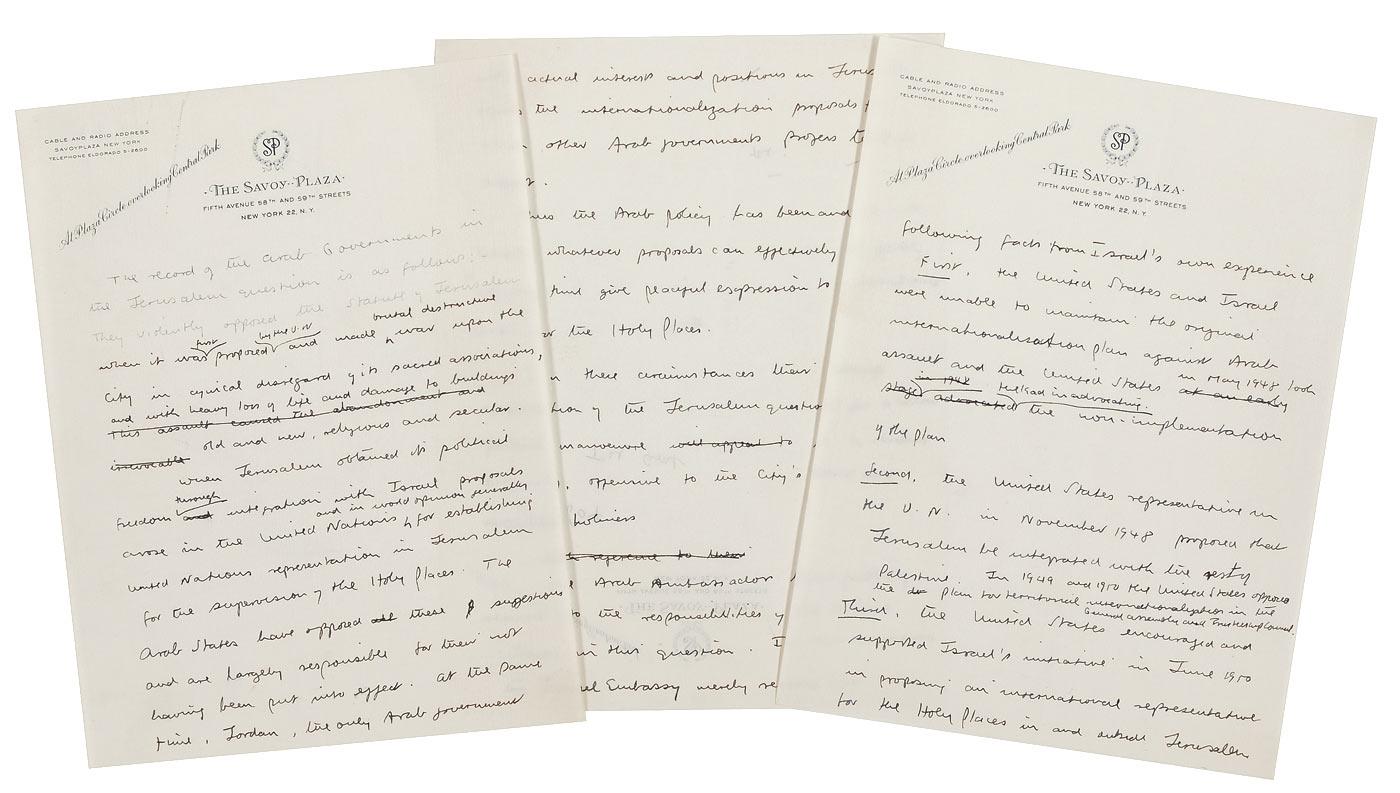 CABLE AND RADIO ADDRESS
SAVOYPLAZA NEW YORK
TELEPHONE ELDORADO 5-2600
At Plaza Circle overlooking Central Park
SP
·THE SAVOY-PLAZA·
FIFTH AVENUE 58TH AND 59TH STREETS
NEW YORK 22, N.Y.
The record of the Arab Governments in
the Jerusalem question is as follows:-
They violently opposed the Statute of Jerusalem
first by the U.N. brutal destructive
when it was proposed and made war upon the
City in cynical disregard of its sacred associations,
and with heavy loss of life and damage to buildings
This assault caused the abandonment and
irrevocable old and new, religious and secular.
When Jerusalem obtained its political
through
freedom and integration with Israel proposals
and in world opinion generally
arose in the United Nations for establishing
United Nations representation in Jerusalem
for the supervision of the Holy Places. The
Arab States have opposed all these suggestions
and are largely responsible for their not
having been put into effect. At the same
time, Jordan, the only Arab government
actual interests and positions in Jerus
the internationalization proposals
other Arab governments profess t
the Arab policy has been and
whatever proposals can effectively
time give peaceful expression to
the Holy Places.
these circumstances their
of the Jerusalem questio
manoeuvre will appeal to
, offensive to the City's
holiness
reference to their
Arab Ambassador
to the responsibilities of
in this question. I
Embassy merely re
CABLE AND RADIO ADDRESS
SAVOYPLAZA NEW YORK
TELEPHONE ELDORADO 5-2600
At Plaza Circle overlooking Central Park
SP
·THE SAVOY-PLAZA·
FIFTH AVENUE 58TH AND 59TH STREETS
NEW YORK 22, N.Y.
following facts from Israel's own experience
First, the United States and Israel
were unable to maintain the original
internationalisation plan against Arab
in May 1948 took
assault and the United States at an early
in 1948 the lead in advocating
stage advocated the non-implementation
of the plan
Second, the United States representative in
the U.N. in November 1948 proposed that
Jerusalem be integrated with the rest of
Palestine. In 1949 and 1950 the United States opposed
the plan for territorial internationalization in the
General Assembly and Trusteeship Council.
Third, the United States encouraged and
supported Israel's initiative in June 1950
in proposing an international representative
for the Holy Places in and outside Jerusalem